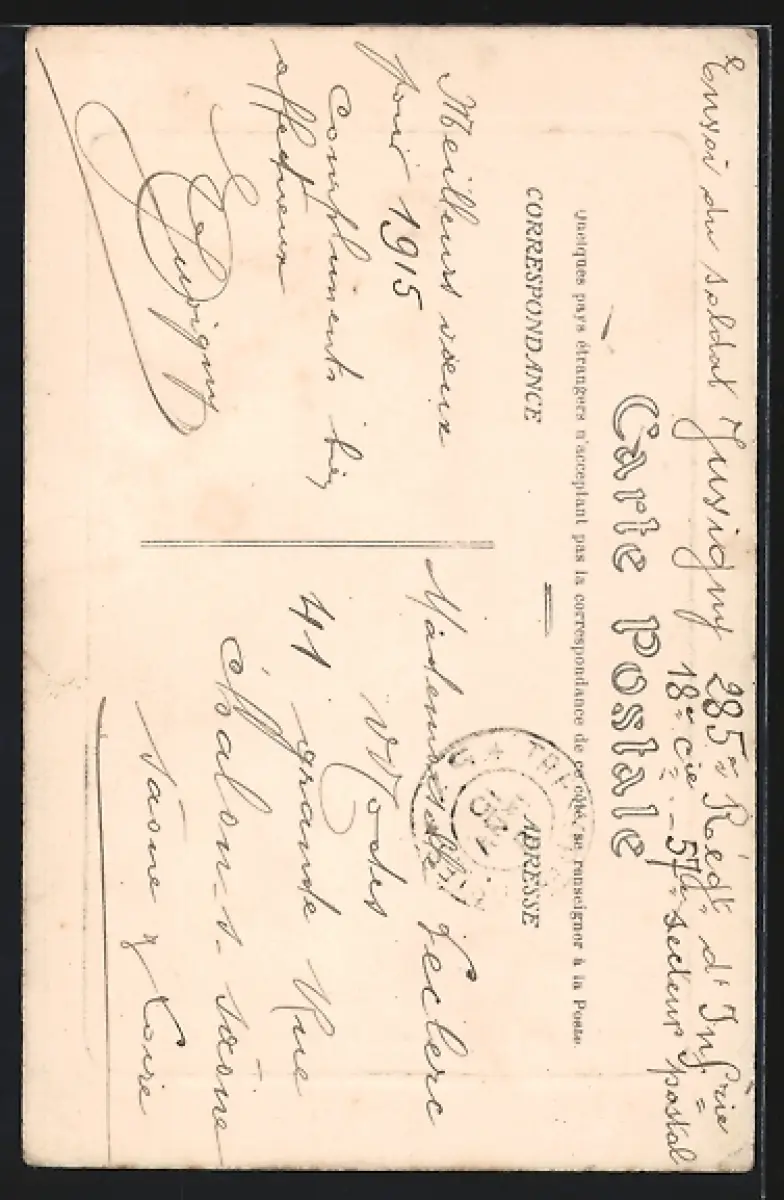 Envoi du soldat Juvigny 285e Regt d'Infrie
18e Cie - 57e secteur postal
Carte Postale
Quelques pays étrangers n'acceptant pas la correspondance de ce côté, se renseigner à la Poste.
CORRESPONDANCE
ADRESSE
Meilleurs vœux
pour 1915
Compliments bien
affectueux
Juvigny
Mademoiselle Leclerc
Modes
41 grande Rue
Chalon-s-Saône
Saône & Loire
TRE